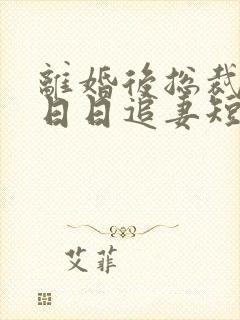 離婚後総裁
日日追妻短
艾菲